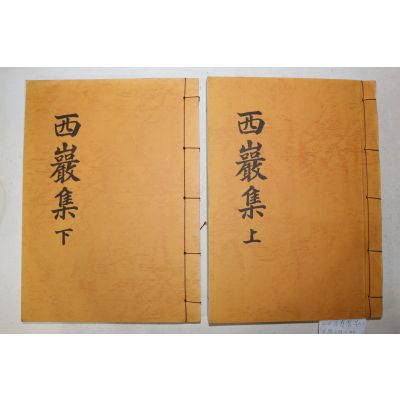 西巖集上
西巖集下